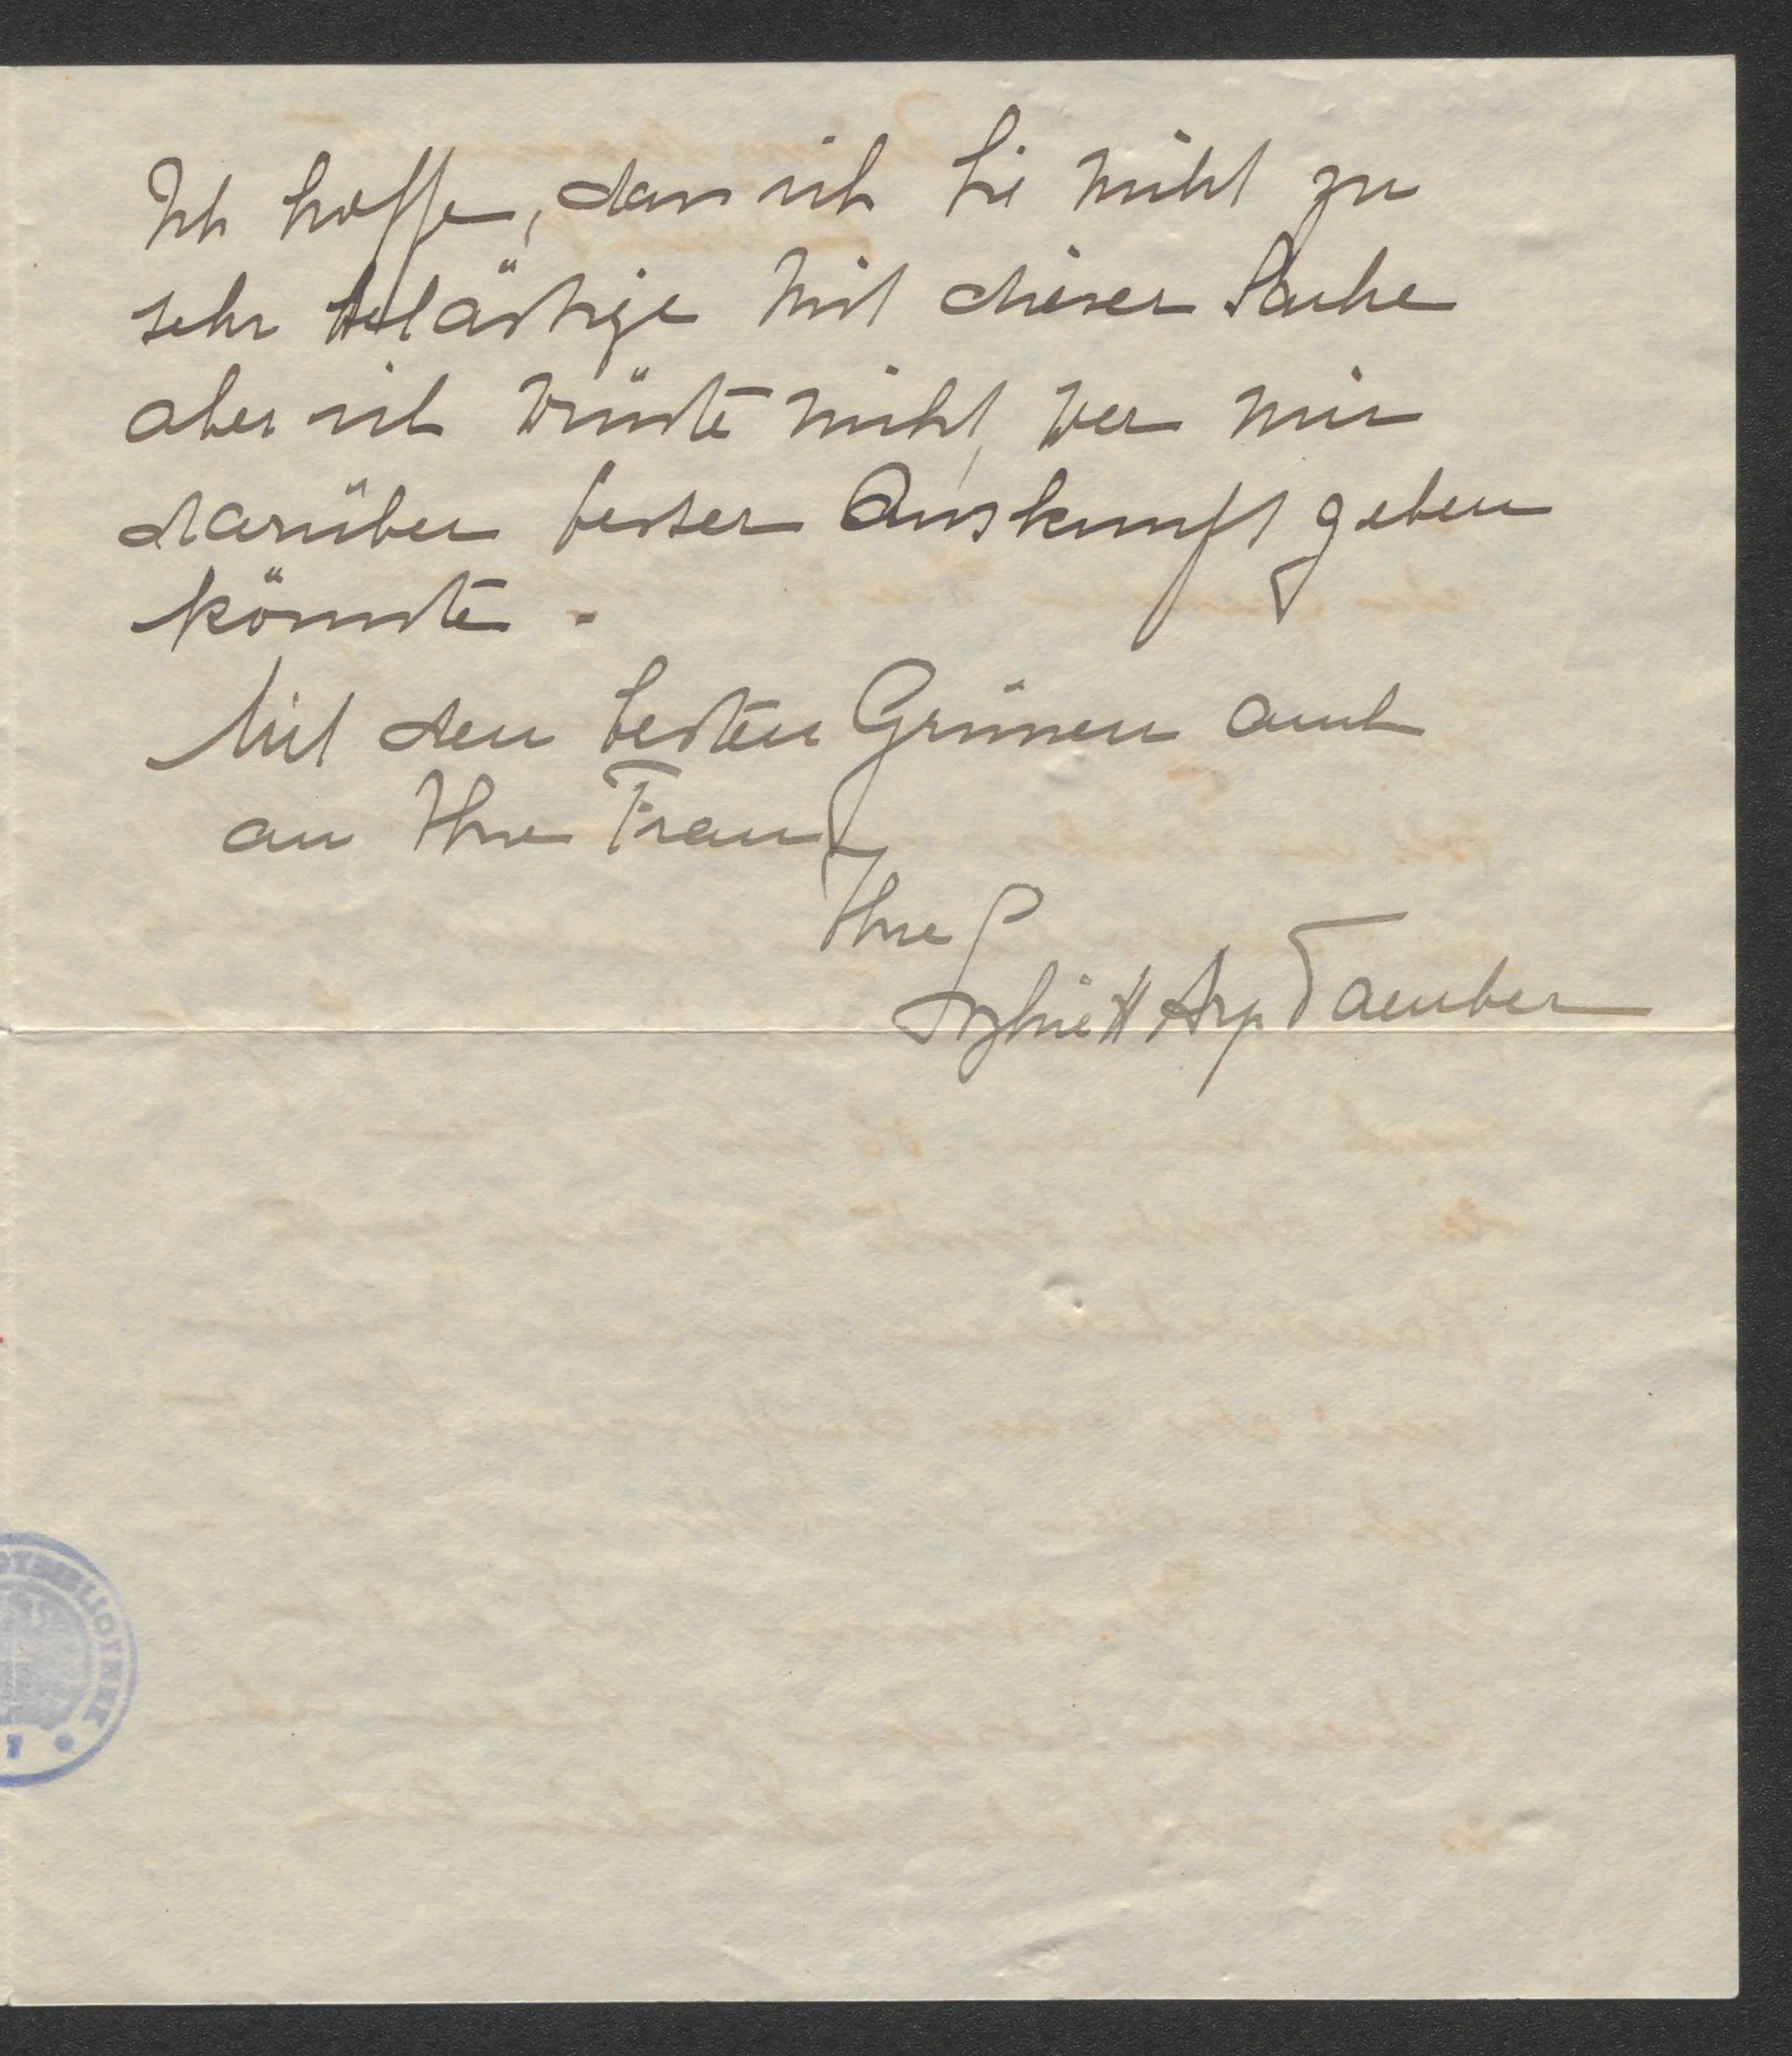 Ich hoffe, dass ich Sie nicht zu
sehr belästige mit dieser Sache
aber ich wüsste nicht, wer mir
darüber besser Auskunft geben
könnte.
Mit den besten Grüssen auch
an Ihre Frau
Ihre
Sophie H Arp Taeuber